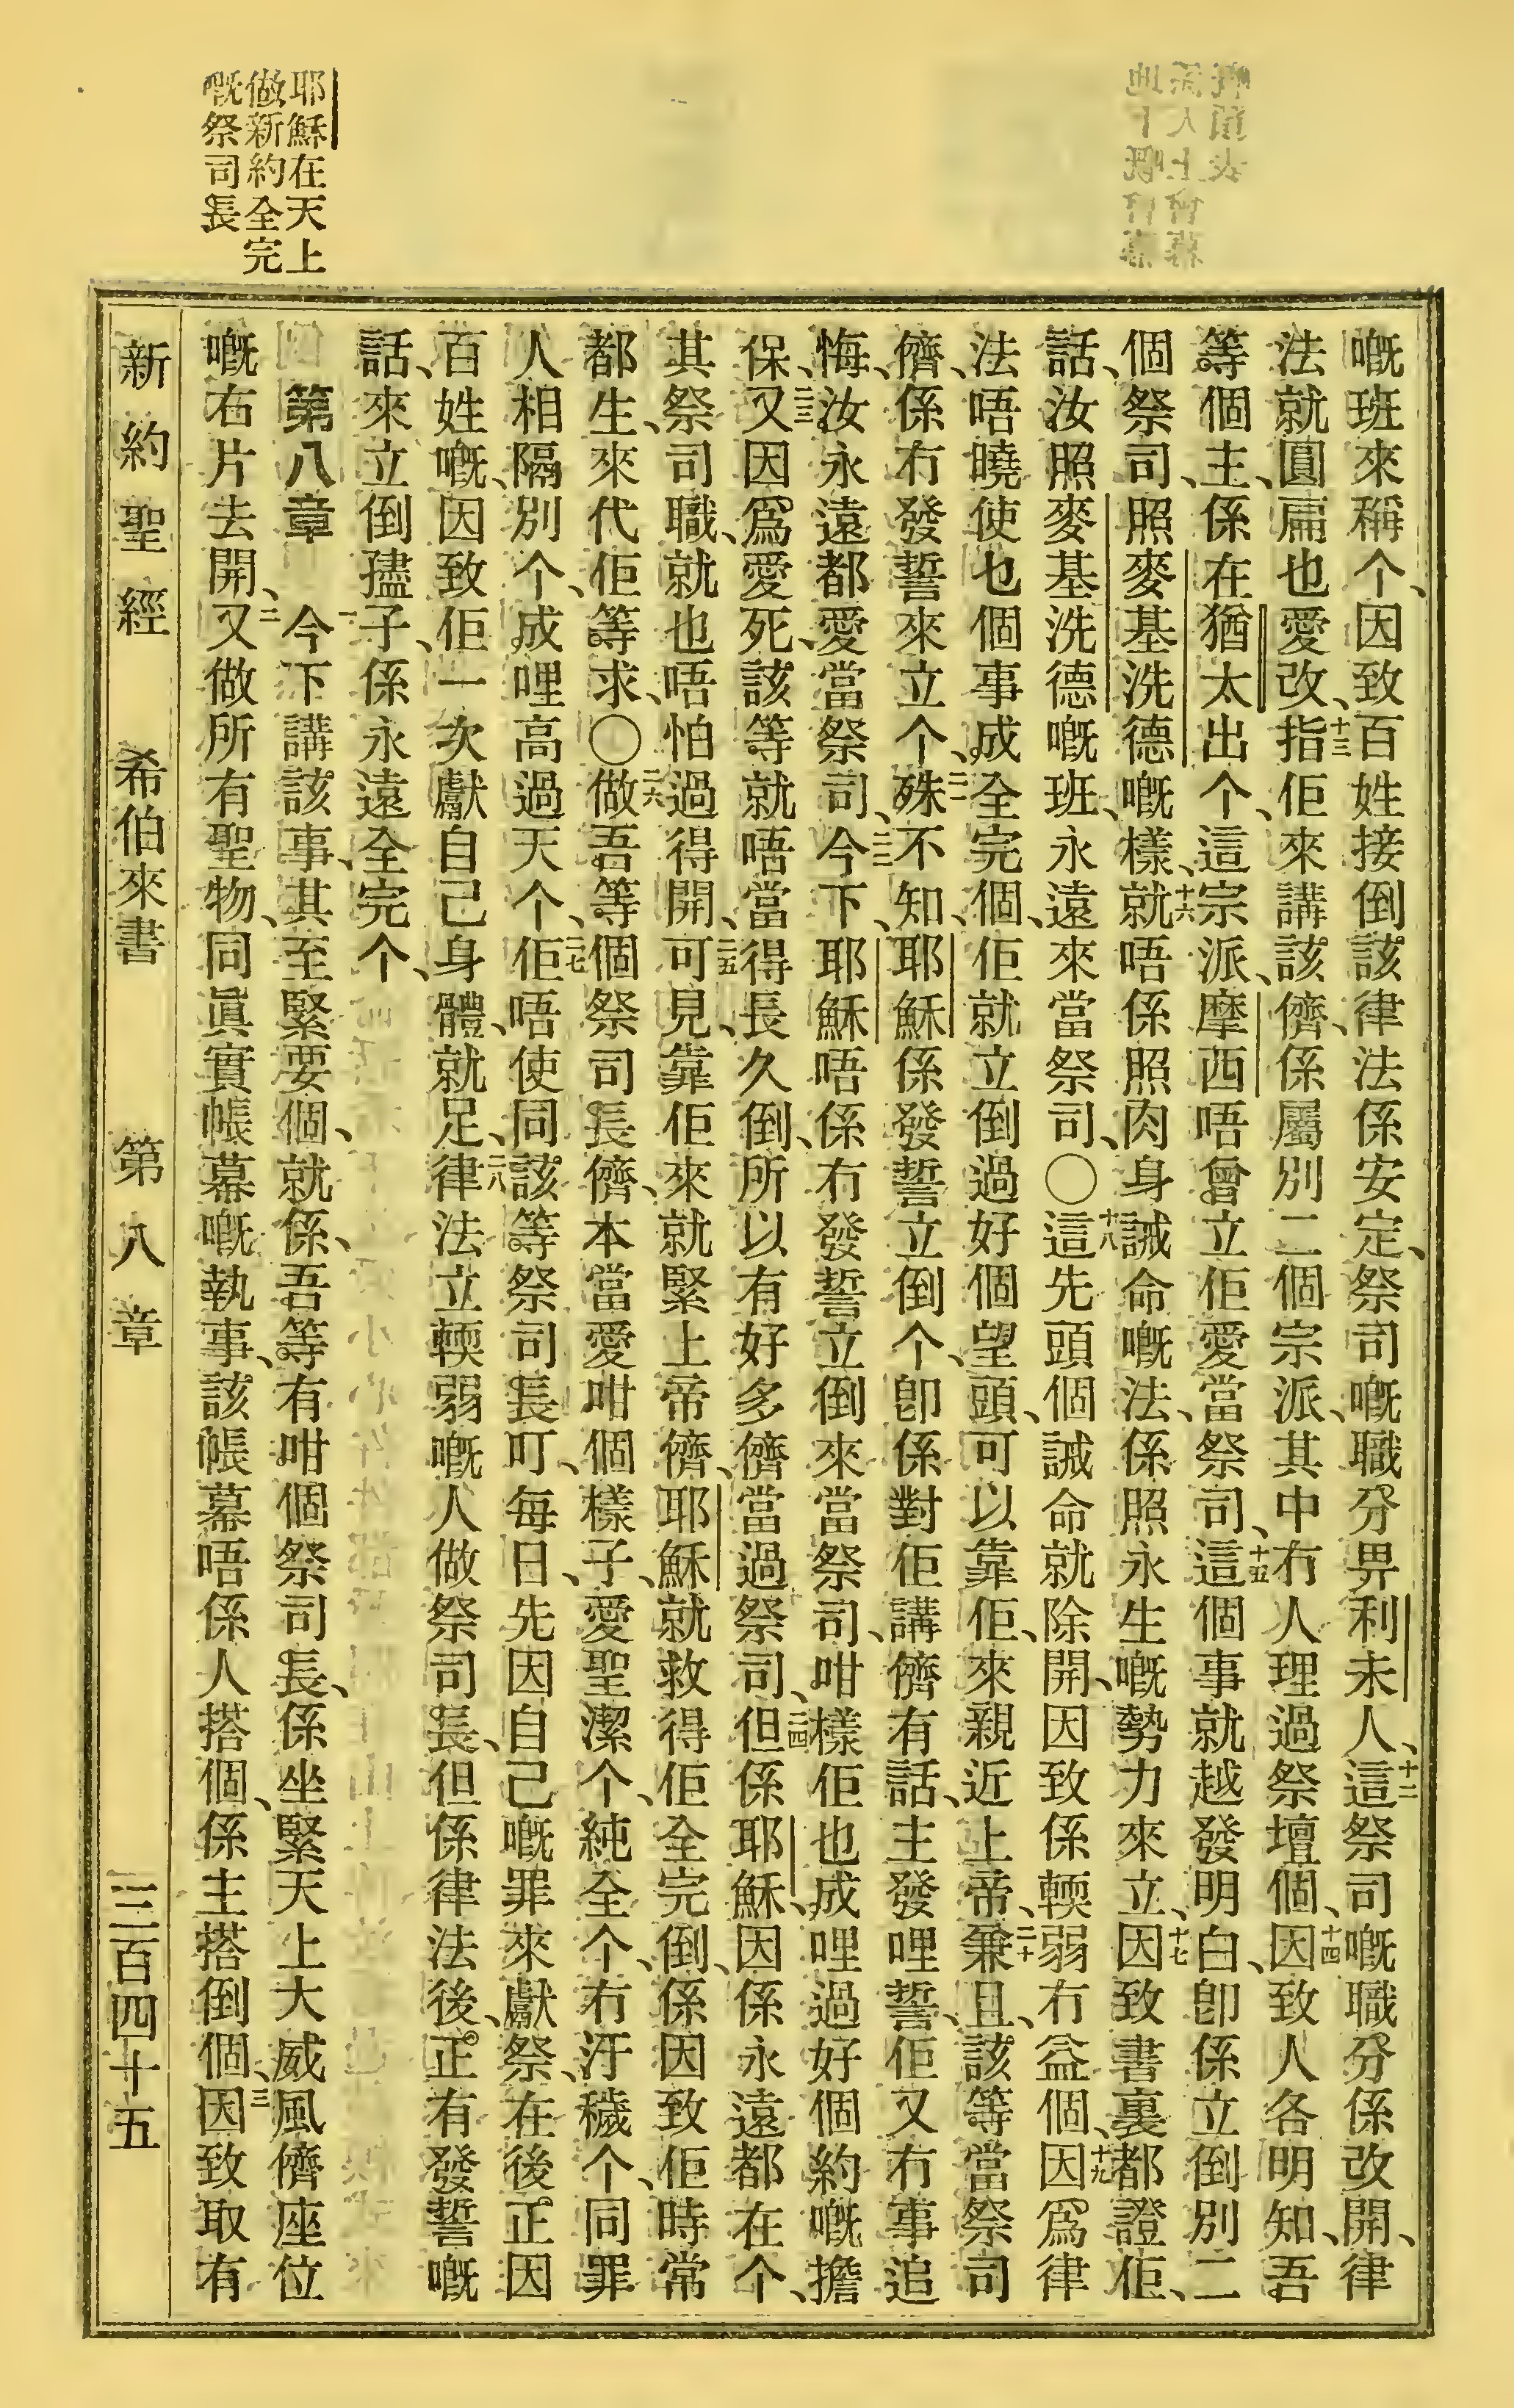 耶穌在天上
做新約全完
嘅祭司長
嘅班來稱个、因致百姓接倒該律法係安定、祭司嘅職分畀利未人、十二這祭司嘅職分係改開、律
法就圓扁也愛改、十三指佢來講該儕、係屬別二個宗派、其中冇人理過祭壇個、十四因致人各明知、吾
等個主、係在猶太出个、這宗派、摩西唔曾立佢愛當祭司、十五這個事就越發明白、卽係立倒別二
個祭司、照麥基洗德嘅樣、十六就唔係照肉身誡命嘅法、係照永生嘅勢力來立、十七因致書裏都證佢、
話、汝照麥基洗德嘅班、永遠來當祭司、〇十八這先頭個誡命就除開、因致係輭弱冇益個、十九因爲律
法唔曉使乜個事成全完個、佢就立倒過好個望頭、可以靠佢、來親近上帝、二十兼且、該等當祭司
儕、係冇發誓來立个、二一殊不知、耶穌係發誓立倒个、卽係對佢講儕有話、主發哩誓、佢又冇事追
悔、汝永遠都愛當祭司、二二今下、耶穌唔係冇發誓立倒來當祭司、咁樣佢也成哩過好個約嘅擔
保、二三又因爲愛死、該等就唔當得長久倒、所以有好多儕當過祭司、二四但係耶穌、因係永遠都在个、
其祭司職、就也唔怕過得開、二五可見、靠佢來就緊上帝儕、耶穌就救得佢全完倒、係因致佢時常
都生、來代佢等求、〇二六做吾等個祭司長儕、本當愛咁個樣子、愛聖潔个、純全个、冇汙穢个、同罪
人相隔別个、成哩高過天个、二七佢唔使同該等祭司長叮、每日、先因自己嘅罪來獻祭、在後正因
百姓嘅、因致佢一次獻自己身體、就足、二八律法立輭弱嘅人做祭司長、但係律法後、正有發誓嘅
話、來立倒孻子、係永遠全完个、
第八章　一今下講該事、其至緊要個、就係、吾等有咁個祭司長、係坐緊天上大威風儕座位
嘅右片去開、二又做所有聖物、同眞實帳幕嘅執事、該帳幕唔係人搭個、係主搭倒個、三因致取有
新約聖經　希伯來書　第八章　三百四十五